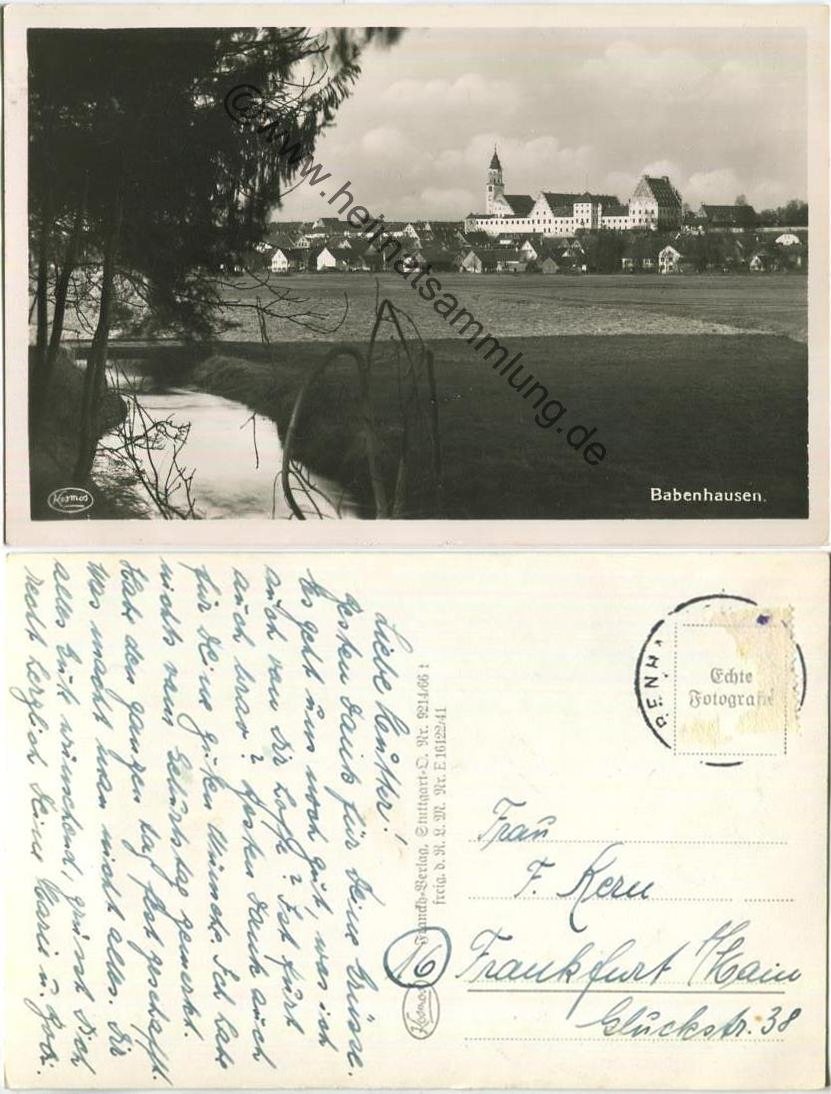 ©www.heimatsammlung.de
Kosmos
Babenhausen.
Liebe
besten Dank für Deine Grüsse.
Es geht uns noch gut, was ich
auch von Dir hoffe? Ist Kurt
auch brav? Besten Dank auch
für Deine guten Wünsche. Ich habe
nichts vom Geburtstag gemerkt.
Habe den ganzen Tag fest geschafft.
Was macht man nicht alles. Dir
alles Gute wünschend, grüsst Dich
recht herzlich Deine Marie u.
Franckh-Verlag, Stuttgart-O. Nr. 9214/66 t
freig. d. R. L. M. Nr. E 16122/41
Kosmos
BENHA
Echte
Fotografie
Frau
F. Kern
16 Frankfurt/Main
Gluckstr. 38